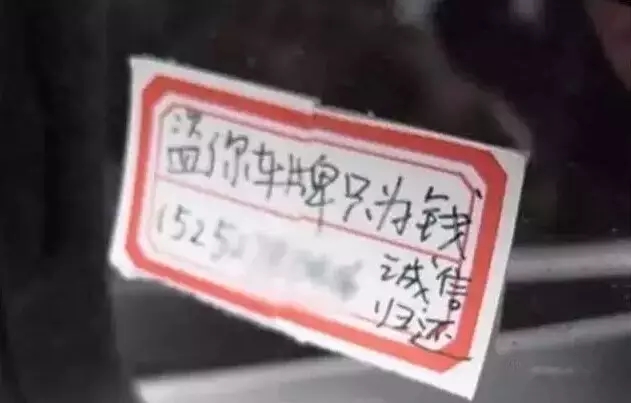 盗你车牌只为钱
1525
诚信
归还